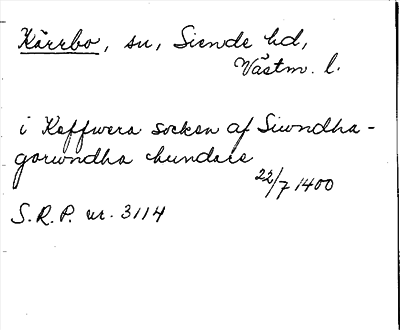 Kärrbo, sn, Siende hd,
Västm. l.
i Keffwera socken af Siwndha-
gorwndha hundare
22/7 1400
S.R.P. nr. 3114